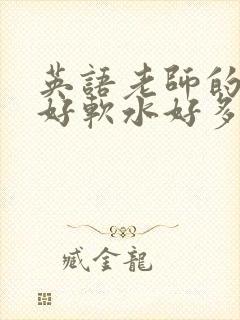 英語老師的
好軟水好多
臧金龍